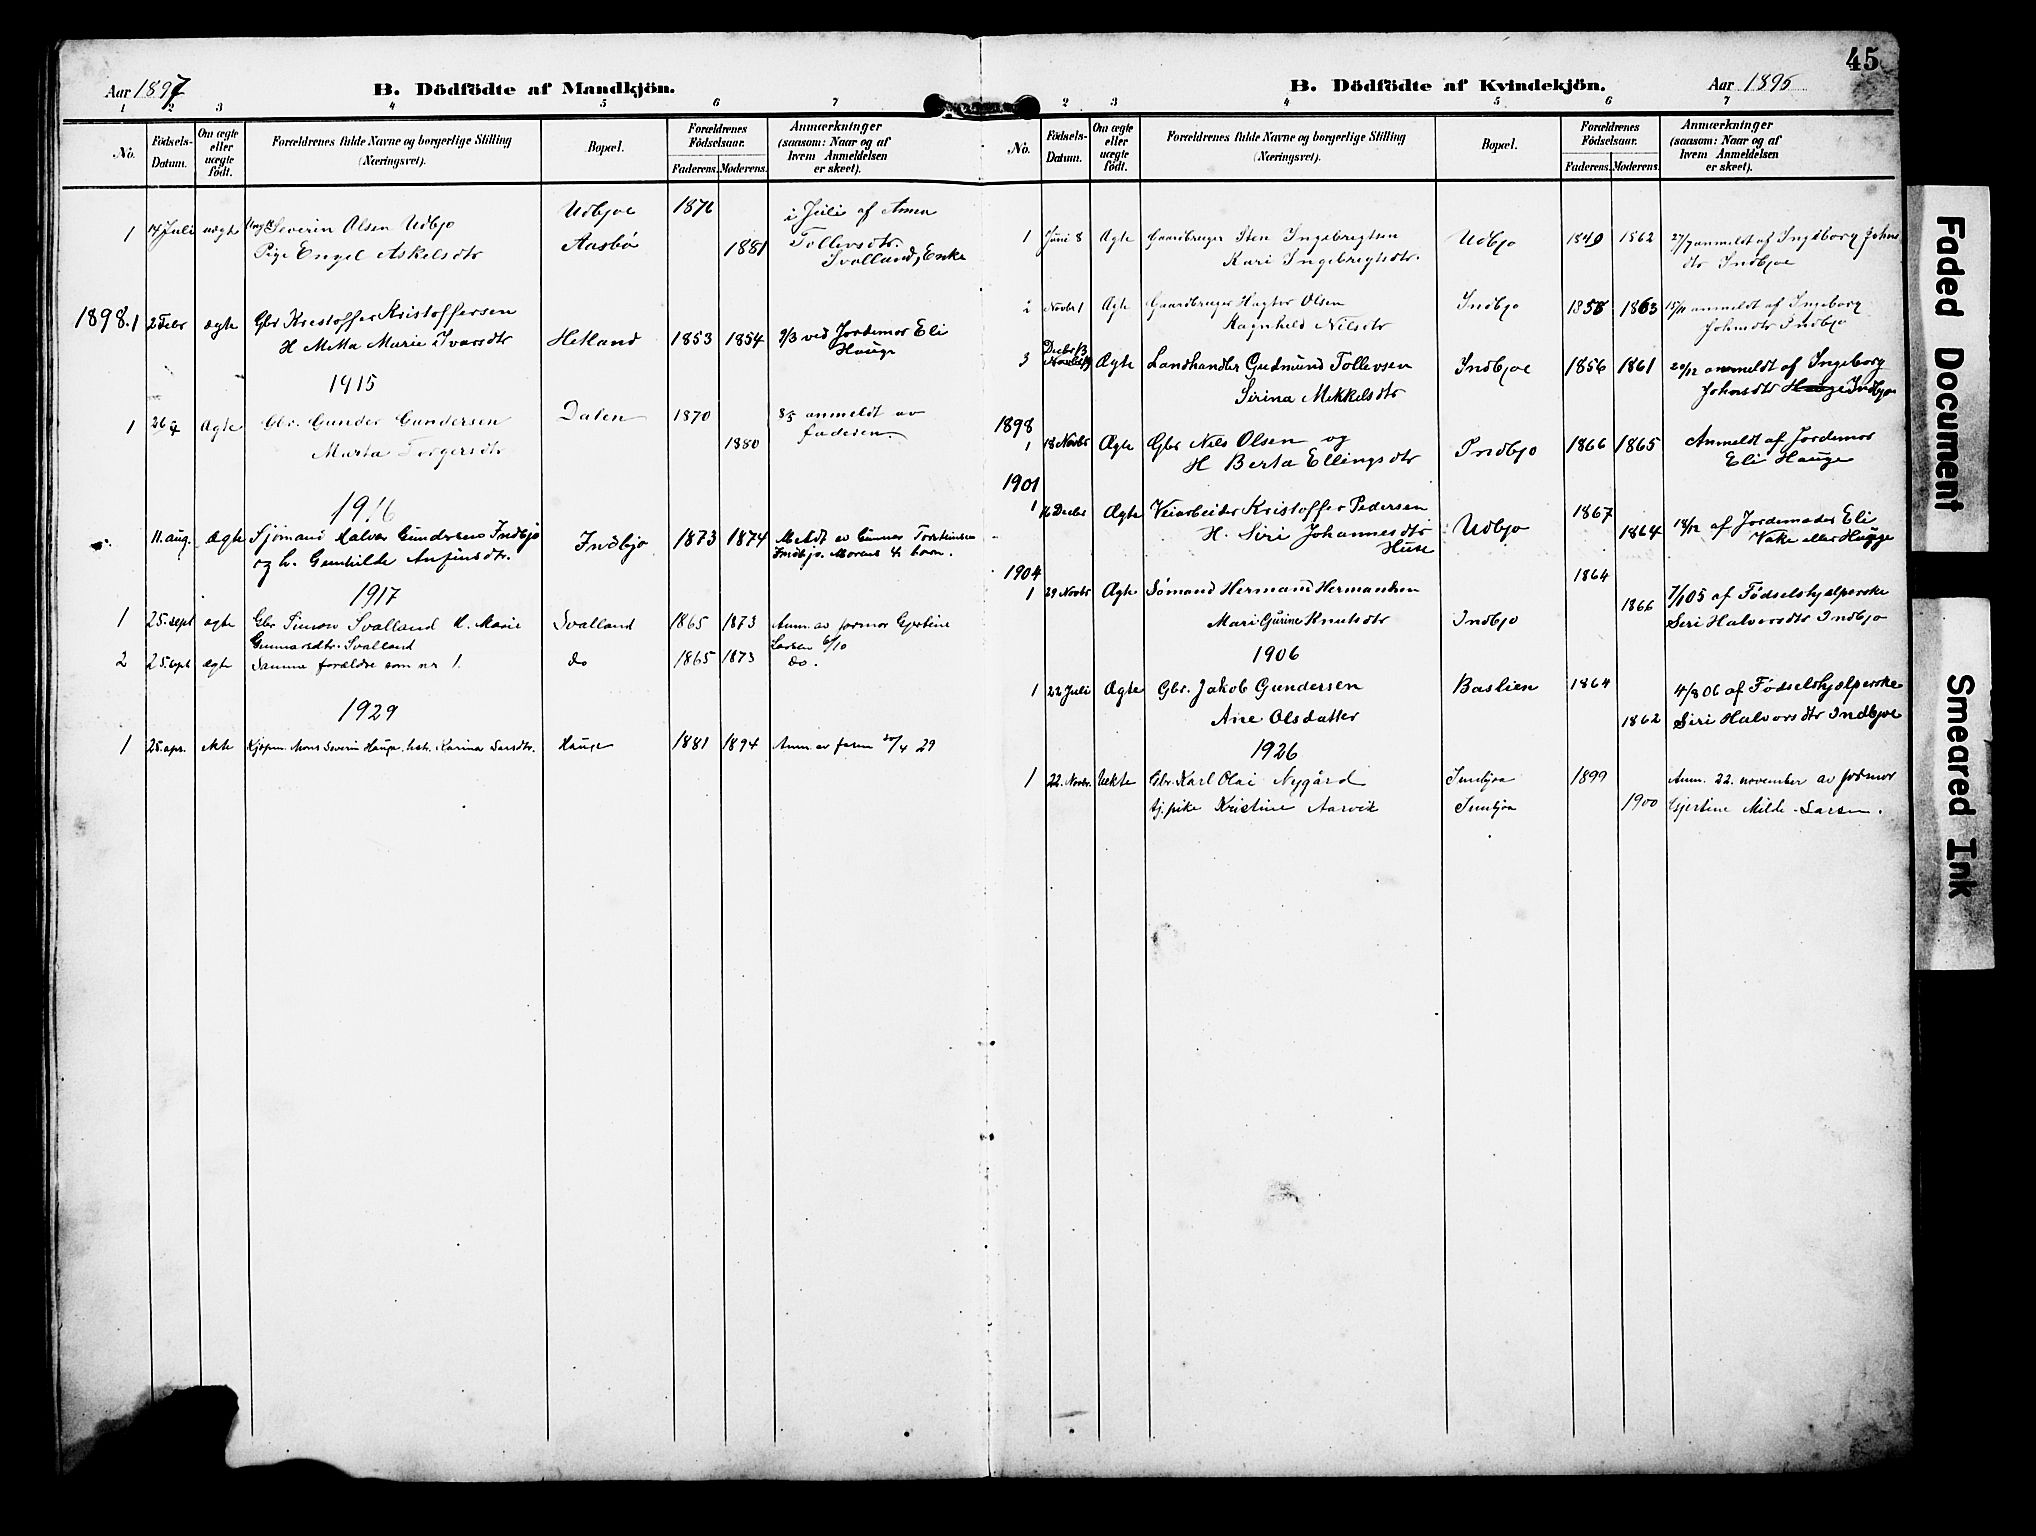 45
Aar 1897
B. Dödfödte af Mandkjön.
1 2 3 4 5 6 7
No.
Födsels-Datum.
Om ægte eller uægte födt.
Forældrenes fulde Navne og borgerlige Stilling (Næringsvei).
Bopæl.
Forældrenes Födselsaar.
Faderens. Moderens.
Anmærkninger (saasom: Naar og af hvem Anmeldelsen er skeet).
1 14 Juli uægte Ungk Severin Olsen Udbjo Udbjoe 1876 i Juli af Anna
Pige Engel Askelsdtr Aasbø 1881 Tollevsdtr.
Svalland, Enke
1898. 1 2 Febr ægte Gbr Kristoffer Kristoffersen
H Metta Marie Ivarsdtr Hetland 1853 1854 9/3 ved Jordemor Eli
Hauge
1915
1 26/4 Ægte Gbr. Gunder Gundersen Dalen 1870 8/5 anmeldt av
Marta Torgersdtr 1880 faderen.
1916
11. aug. Ægte Sjømand Halvor Gundersen Indbjo Indbjo 1873 1874 Meldt av Gunner Torstensen
og h. Gunhilde Anfinsdtr. Indbjo. Morens 4 barn.
1917
1 25. sept ægte Gbr Simon Svalland H. Marie Svalland 1865 1873 Anm. av jormor Gjertine
Gunnarsdtr. Svalland Larsen 6/10
2 25. sept ægte Samme forældre som nr 1. do 1865 1873 do.
1929
1 25. apr. ekte Kjøpm. Mons Severin Hauge, hst. Karina Larsdtr. Hauge 1881 1894 Anm. av faren 30/4 29
B. Dödfödte af Kvindekjön.
Aar 1895
2 3 4 5 6 7
No.
Födsels-Datum.
Om ægte eller uægte födt.
Forældrenes fulde Navne og borgerlige Stilling (Næringsvei).
Bopæl.
Forældrenes Födselsaar.
Faderens. Moderens.
Anmærkninger (saasom: Naar og af hvem Anmeldelsen er skeet).
1 Juni 8 Ægte Gaardbruger Sten Ingebregtsen Udbjo 1840 1862 27/7 anmeldt af Ingeborg Johns
Kari Ingebregtsdtr. dtr Indbjoe
2 Novbr 1 Ægte Gaardbruger Hagtor Olsen Indbjo 1858 1863 15/11 anmeldt af Ingeborg
Ragnhild Nilsdtr Johnsdtr Indbjo
3 Decbr 13 Ægte Landhandler Gudmund Tollevsen Indbjoe 1856 1861 20/12 anmeldt af Ingeborg
Sirina Mikkelsdtr Johnsdtr Hauge Indbjo
1898
1 18 Novbr Ægte Gbr Nils Olsen og Indbjo 1866 1865 Anmeldt af Jordemor
H Berta Ellingsdtr Eli Hauge
1901
1 16 Decbr Ægte Veiarbeider Kristoffer Pedersen 1867
H. Siri Johannesdtr Udbjo 1864 18/12 af Jordemoder Eli
Huse Vake eller Hauge
1904
1 29 Novbr Ægte Sømand Hermand Hermandsen 1864 7/1 05 af Födselshjælperske
Mari Gurine Knutsdtr Indbjo 1866 Siri Halvorsdtr Indbjo
1906
1 22 Juli Ægte Gbr. Jakob Gundersen Baslien 1864 4/8 06 af Födselshjælperske
Ane Olsdatter 1862 Siri Halvorsdtr Indbjoe
1926
1 22. Novbr. Uekte Gbr. Karl Olai Nygård Innbjoa 1899 Anm. 22. november av jodmor
tj. pike Kristine Aarvik Innbjoa 1900 Gjertine Milde-Larsen.
Faded Document
Smeared Ink